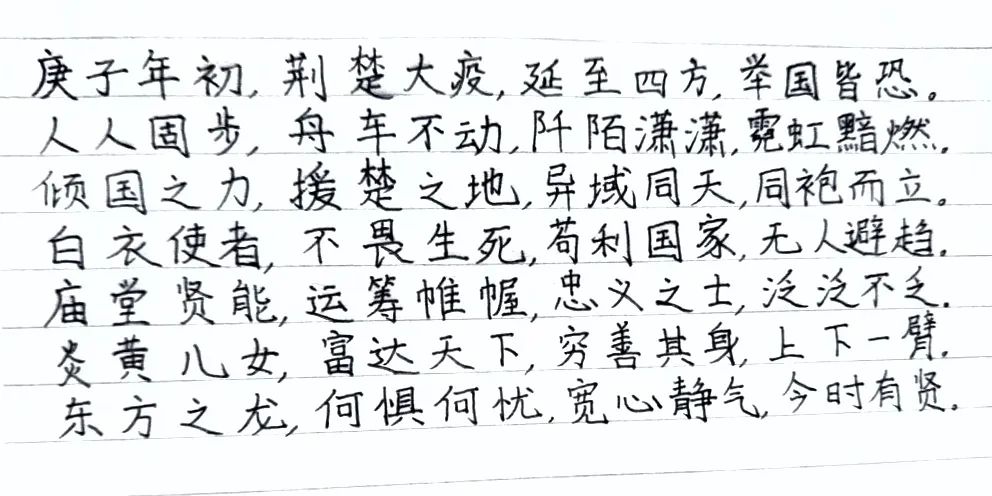 庚子年初,荆楚大疫,延至四方,举国皆恐。
人人固步,舟车不动,阡陌潇潇,霓虹黯燃。
倾国之力,援楚之地,异域同天,同袍而立。
白衣使者,不畏生死,苟利国家,无人避趋。
庙堂贤能,运筹帷幄,忠义之士,泛泛不乏。
炎黄儿女,富达天下,穷善其身,上下一臂。
东方之龙,何惧何忧,宽心静气,今时有贤。